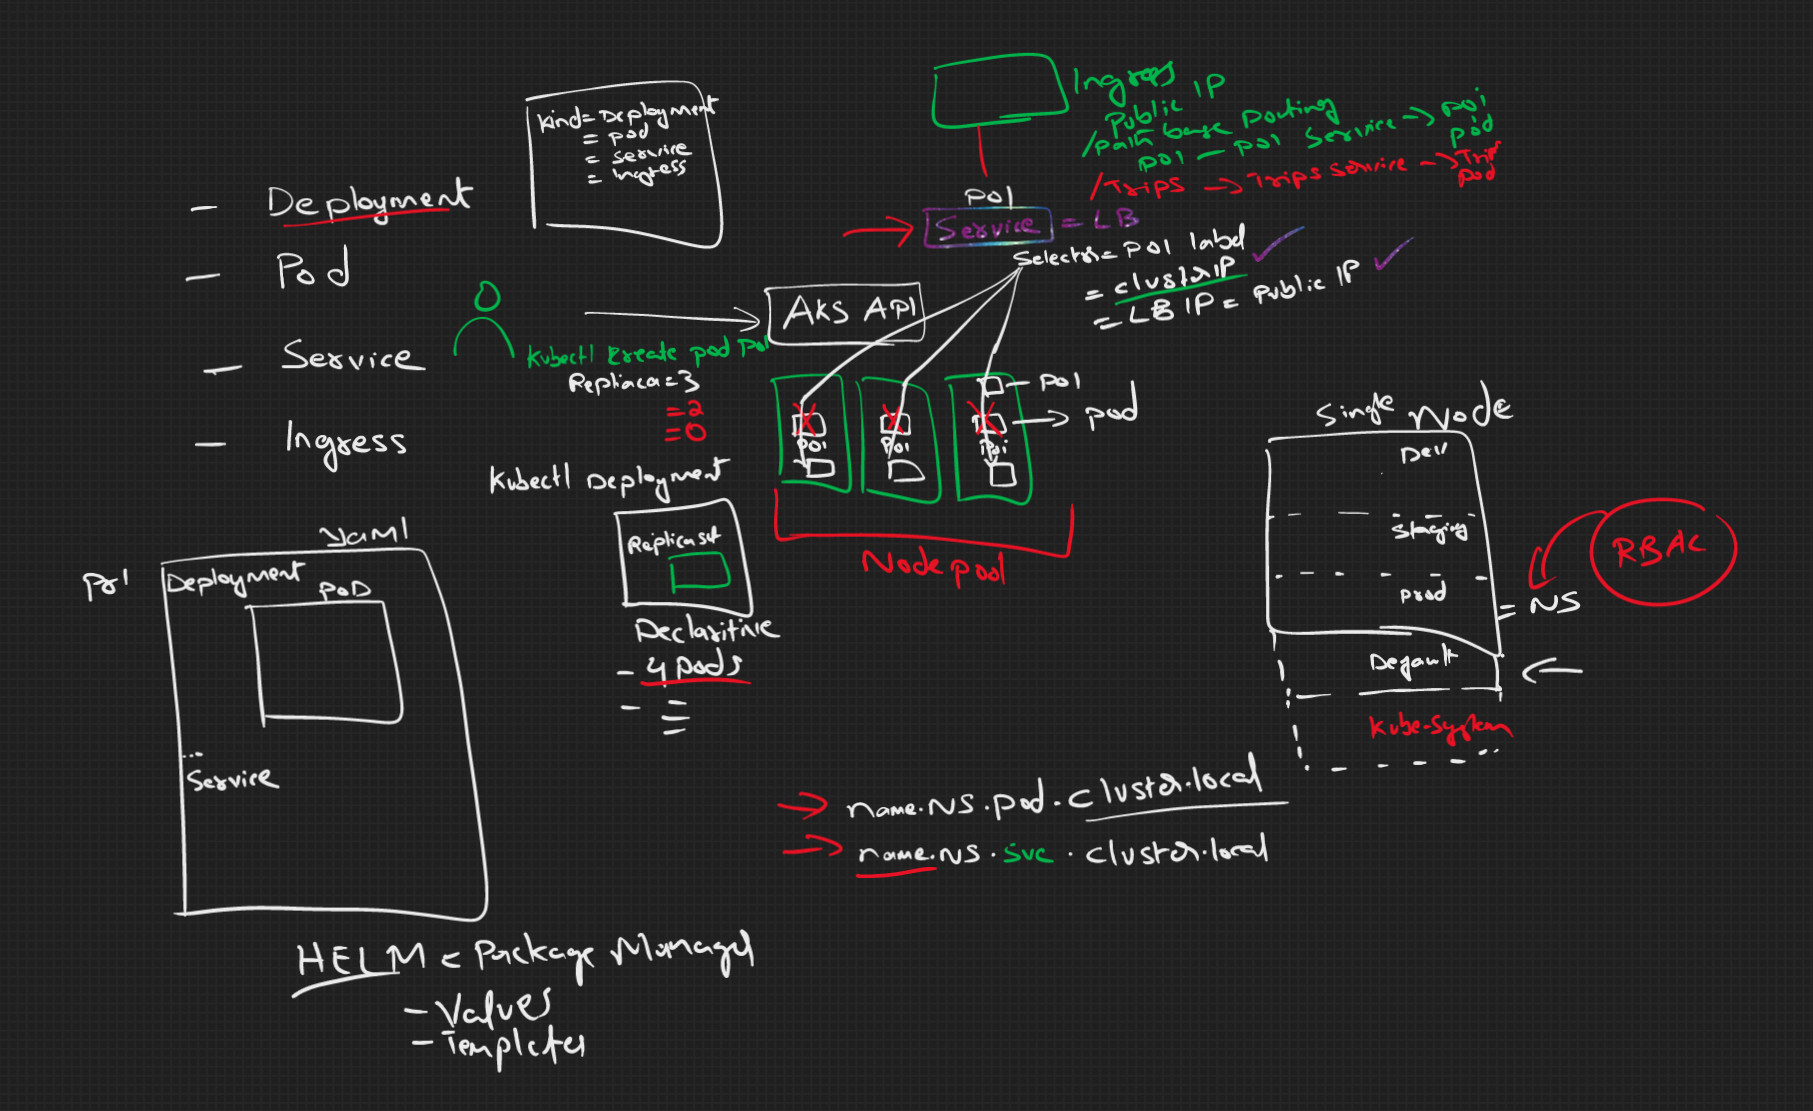 Kind= Deployment
= pod
= service
= Ingress
- Deployment
- Pod
- Service
- Ingress
Ingress
Public IP
/path base routing
poi - poi service -> poi pod
/Trips -> Trips service -> Trip pod
poi
Service = LB
Selector= poi label
= clusterIP
= LB IP = Public IP
AKS API
Kubectl create pod poi
Repliaca=3
=2
=0
poi
pod
poi
poi
poi
Node pool
Kubectl Deployment
Replicaset
Declaritive
- 4 pods
- =
Single Node
Dev
Staging
prod
= NS
RBAC
Default
Kube-System
Yaml
poi
Deployment
POD
Service
name.NS.pod.cluster.local
name.NS.svc.cluster.local
HELM = Package Manager
- Values
- Templates